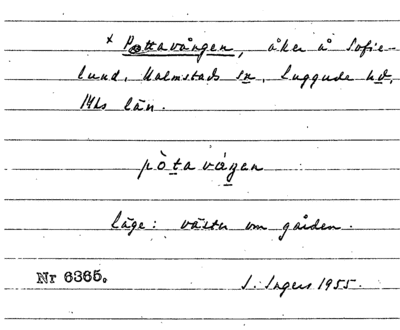 x Pottavången, åker å Sofie-
lund, Halmstads sn, Luggude hd,
Mhs län.
pòtavåŋen
läge: väster om gården.
Nr 6365.
I. Ingers 1955.